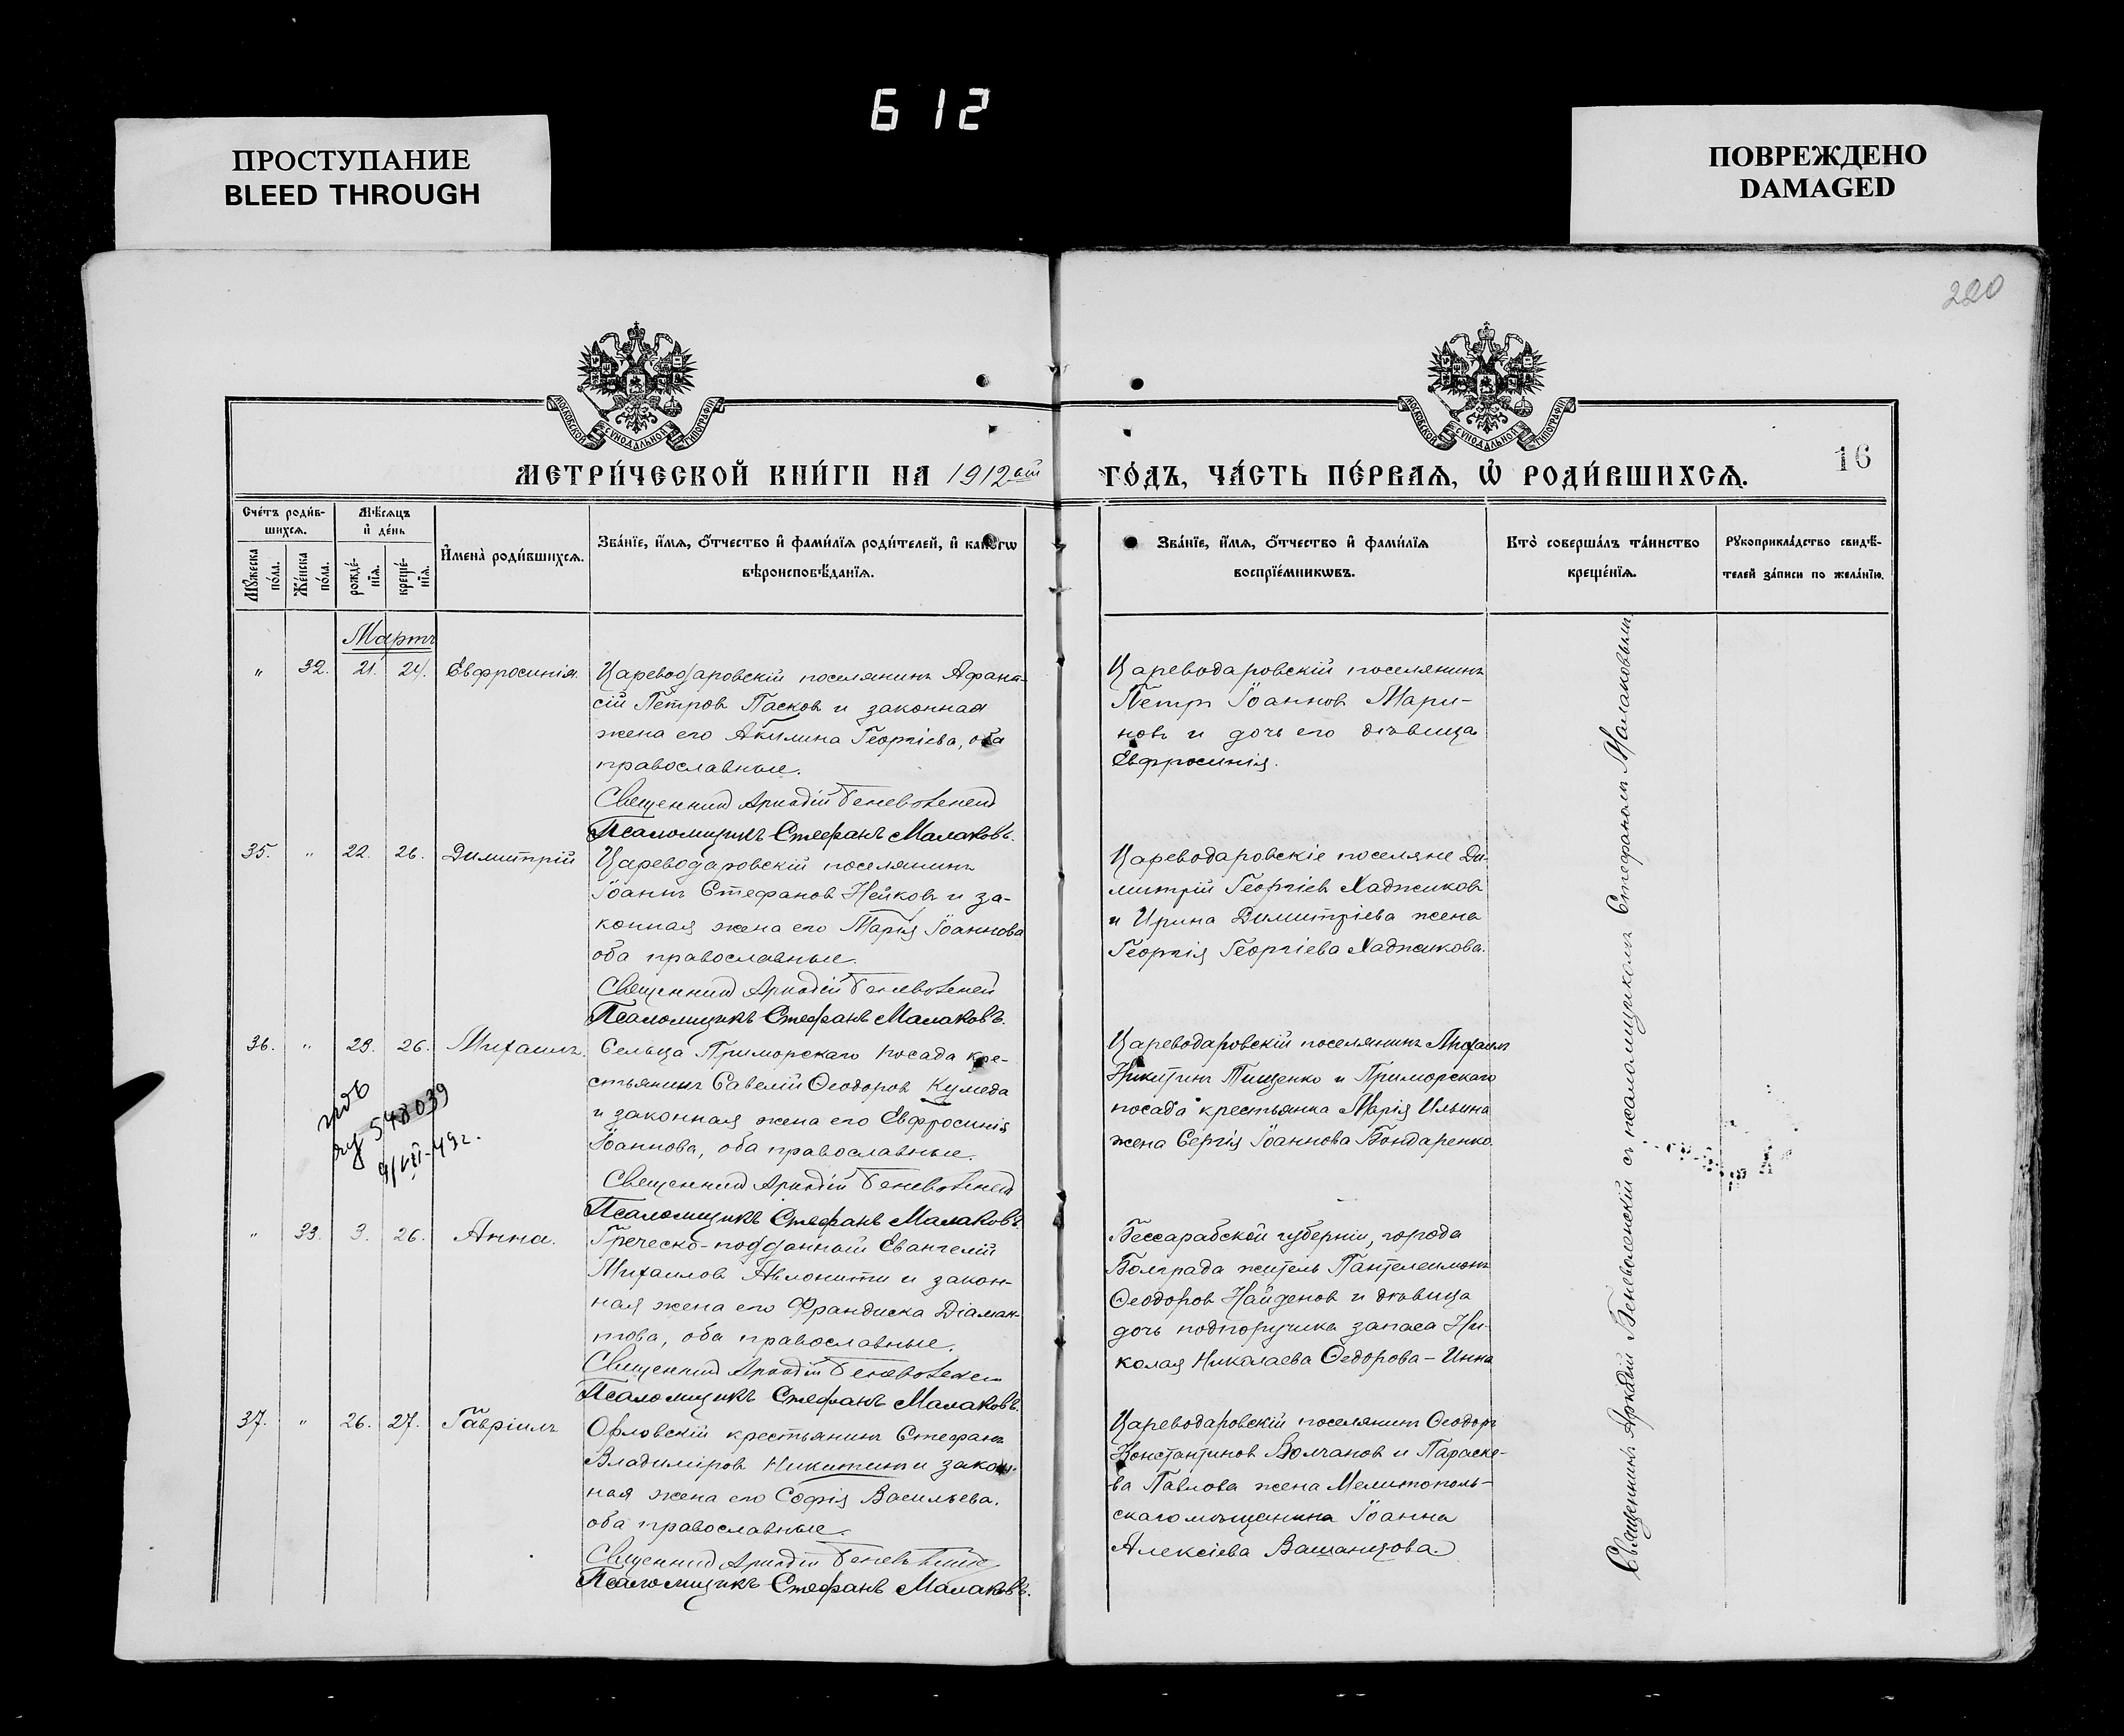 612
ПРОСТУПАНИЕ
BLEED THROUGH
ПОВРЕЖДЕНО
DAMAGED
220
МОСКОВСКОЙ СѴНОДАЛЬНОЙ ТИПОГРАФІИ
МОСКОВСКОЙ СѴНОДАЛЬНОЙ ТИПОГРАФІИ
МЕТРИ́ЧЕСКОЙ КНИ́ГИ НА 1912 ый
ГО́ДЪ, ЧА́СТЬ ПЕ́РВАЯ, Ѡ РОДИ́ВШИХСЯ.
16
Сче́тъ роди́в-
шихся.
Мѣ́сяцъ
и҆ де́нь
Мꙋ́жеска по́ла.
Же́нска по́ла.
рожде́-нїя.
креще́-нїя.
И҆мена̀ роди́вшихся.
Зва́нїе, и҆́мя, ѻ҆́тчество и҆ фами́лїя роди́телей, и҆ како́гѡ
вѣроисповѣ́данїя.
Зва́нїе, и҆́мя, ѻ҆́тчество и҆ фами́лїя
воспрїе́мникѡвъ.
Кто̀ соверша́лъ та́инство
креще́нїя.
Рꙋкоприкла́дство свидѣ́-
телей за́писи по жела́нїю.
Мартъ
" 32. 21. 24. Евфросинія.
Цареводаровскій поселянинъ Афана-
сій Петров Пасков и законная
жена его Акилина Георгіева, оба
православные.
Священник Аркадій Беневоленск
Псаломщикъ Стефанъ Малаковъ.
Цареводаровскій поселянинъ
Петръ Іоаннов Мари-
новъ и дочь его дѣвица
Евфросинія.
35. " 22. 26. Димитрій
Цареводаровскій поселянинъ
Іоаннъ Стефанов Нейковъ и за-
конная жена его Марія Іоаннова
оба православные.
Священник Аркадій Беневоленск
Псаломщикъ Стефанъ Малаковъ.
Цареводаровскіе поселяне Ди-
митрій Георгіев Хаджиков
и Ирина Димитріева жена
Георгія Георгіева Хаджикова.
36. " 23. 26. Михаилъ.
Сельца Приморскаго посада кре-
стьянинъ Савелій Ѳеодоров Кумеда
и законная жена его Евфросинія
Іоаннова, оба православные.
Священник Аркадій Беневоленск
Псаломщикъ Стефанъ Малаковъ.
548039
4/VII-49г.
Цареводаровскій поселянинъ Михаилъ
Никитинъ Тищенко и Приморскаго
посада крестьянка Марія Ильина
жена Сергія Іоаннова Бондаренко.
" 33. 3. 26. Анна.
Греческо-подданный Евангелій
Михаилов Авлонити и закон-
ная жена его Франдиска Діаман-
това, оба православные.
Священник Аркадій Беневоленск
Псаломщикъ Стефанъ Малаковъ.
Бессарабской губерніи, города
Болграда житель Пантелеимонъ
Ѳеодоров Найденов и дѣвица
дочь подпоручика запаса Ни-
колая Николаева Ѳедорова - Инна
37. " 26. 27. Гавріилъ
Орловскій крестьянинъ Стефанъ
Владиміров Никитин и закон-
ная жена его Софія Васильева,
оба православные.
Священник Аркадій Беневоленск
Псаломщикъ Стефанъ Малаковъ.
Цареводаровскій поселянинъ Ѳеодоръ
Константинов Волчанов и Параске-
ва Павлова жена Мелитополь-
скаго мѣщанина Іоанна
Алексіева Вашанцова.
Священникъ Аркадій Беневоленскій съ псаломщикомъ Стефаномъ Малаковымъ